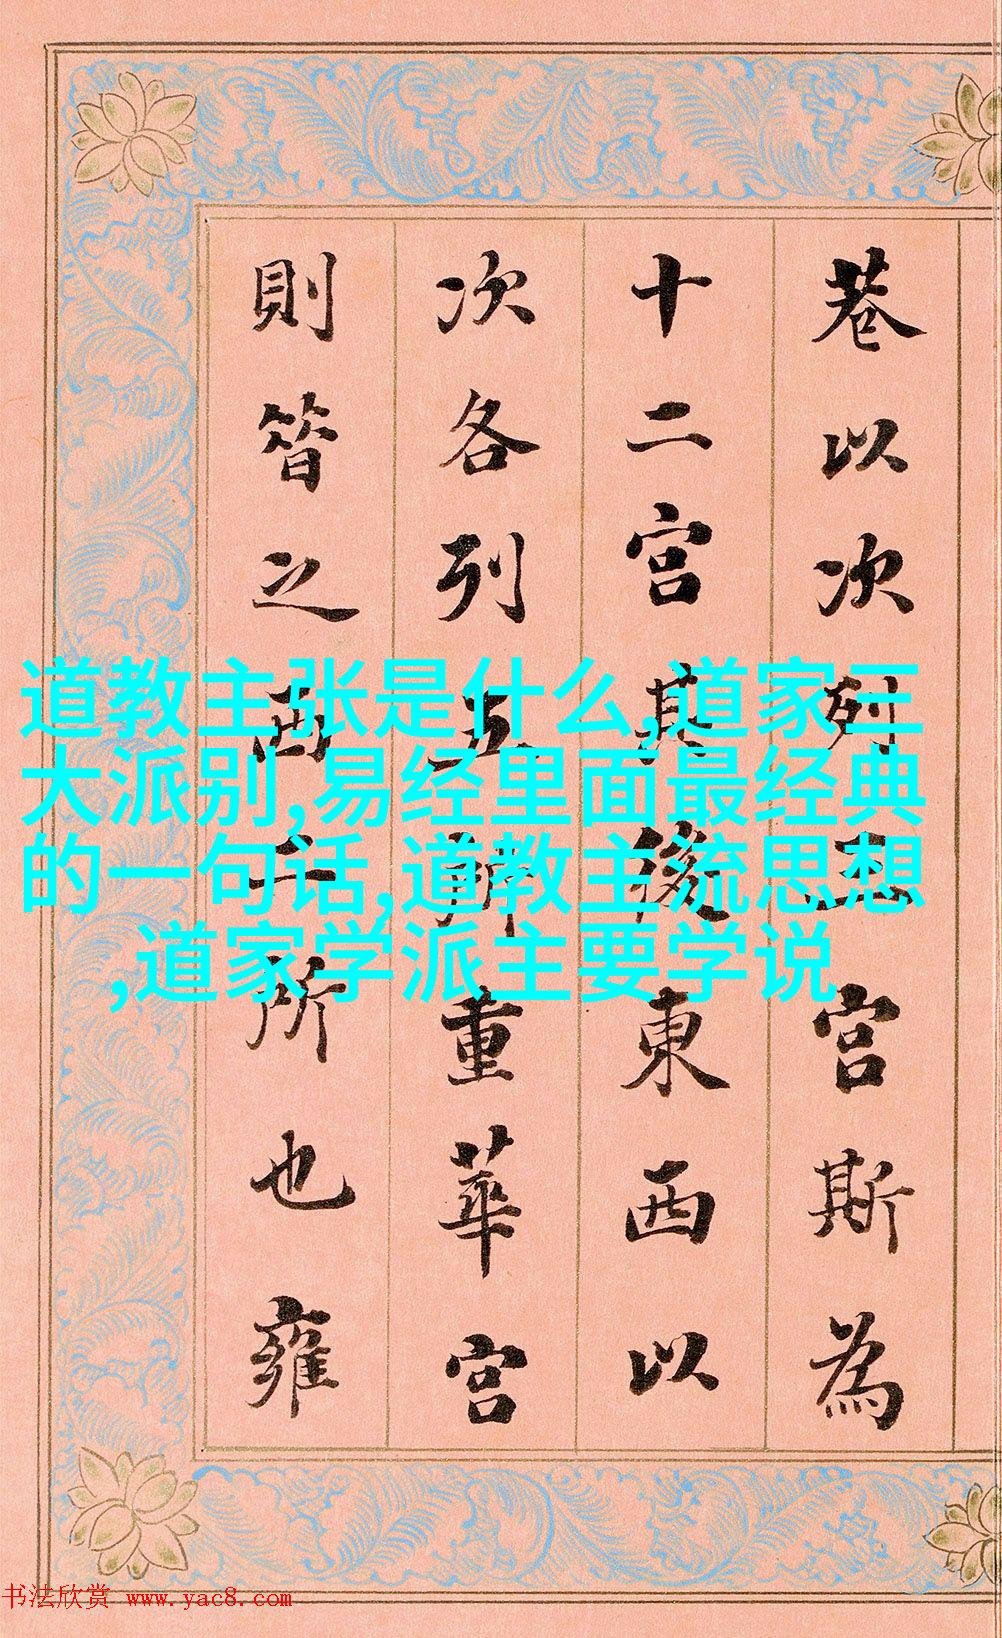 巷以次列五宫斯为
十二宫其後東西以
次各列五所重華宫
則昝之西二所也雍
道教主张是什么,道家三
大派别,易经里面最经典
的一句话,道教主流思想
,道家学派主要学说
书法欣赏 www.yac8.com